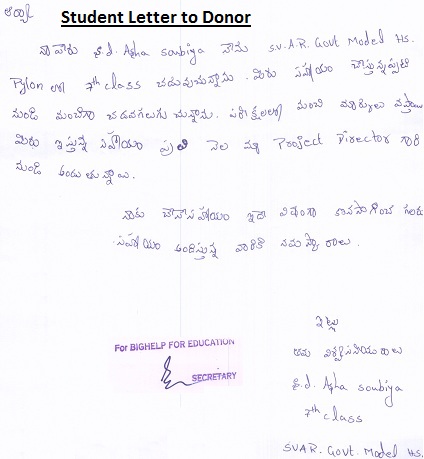 ఆర్యా
Student Letter to Donor
నా పేరు కె.d. Asha soubiya నేను S.V.A.R. Govt Model HS.
Pylon లో 7th class చదువుచున్నాను. మీరు సహాయం చేస్తున్నప్పటి
నుండి మంచిగా చదవగలుగుచున్నాను. పరీక్షలలో మంచి మార్కులు
మీరు ఇస్తున్న సహాయం ప్రతి నెల మా Project Director గారి
నుండి అందుతున్నాయి.
నాకు చేసే సహాయం ఇదే విధంగా కొనసాగించ గలరు
సహాయం అందిస్తున్న వారికి నమస్కారాలు.
ఇట్లు
For BIGHELP FOR EDUCATION
SECRETARY
తమ విశ్వసనీయురాలు
d. Asha soubiya
7th class
SVAR. Govt. Model HS.